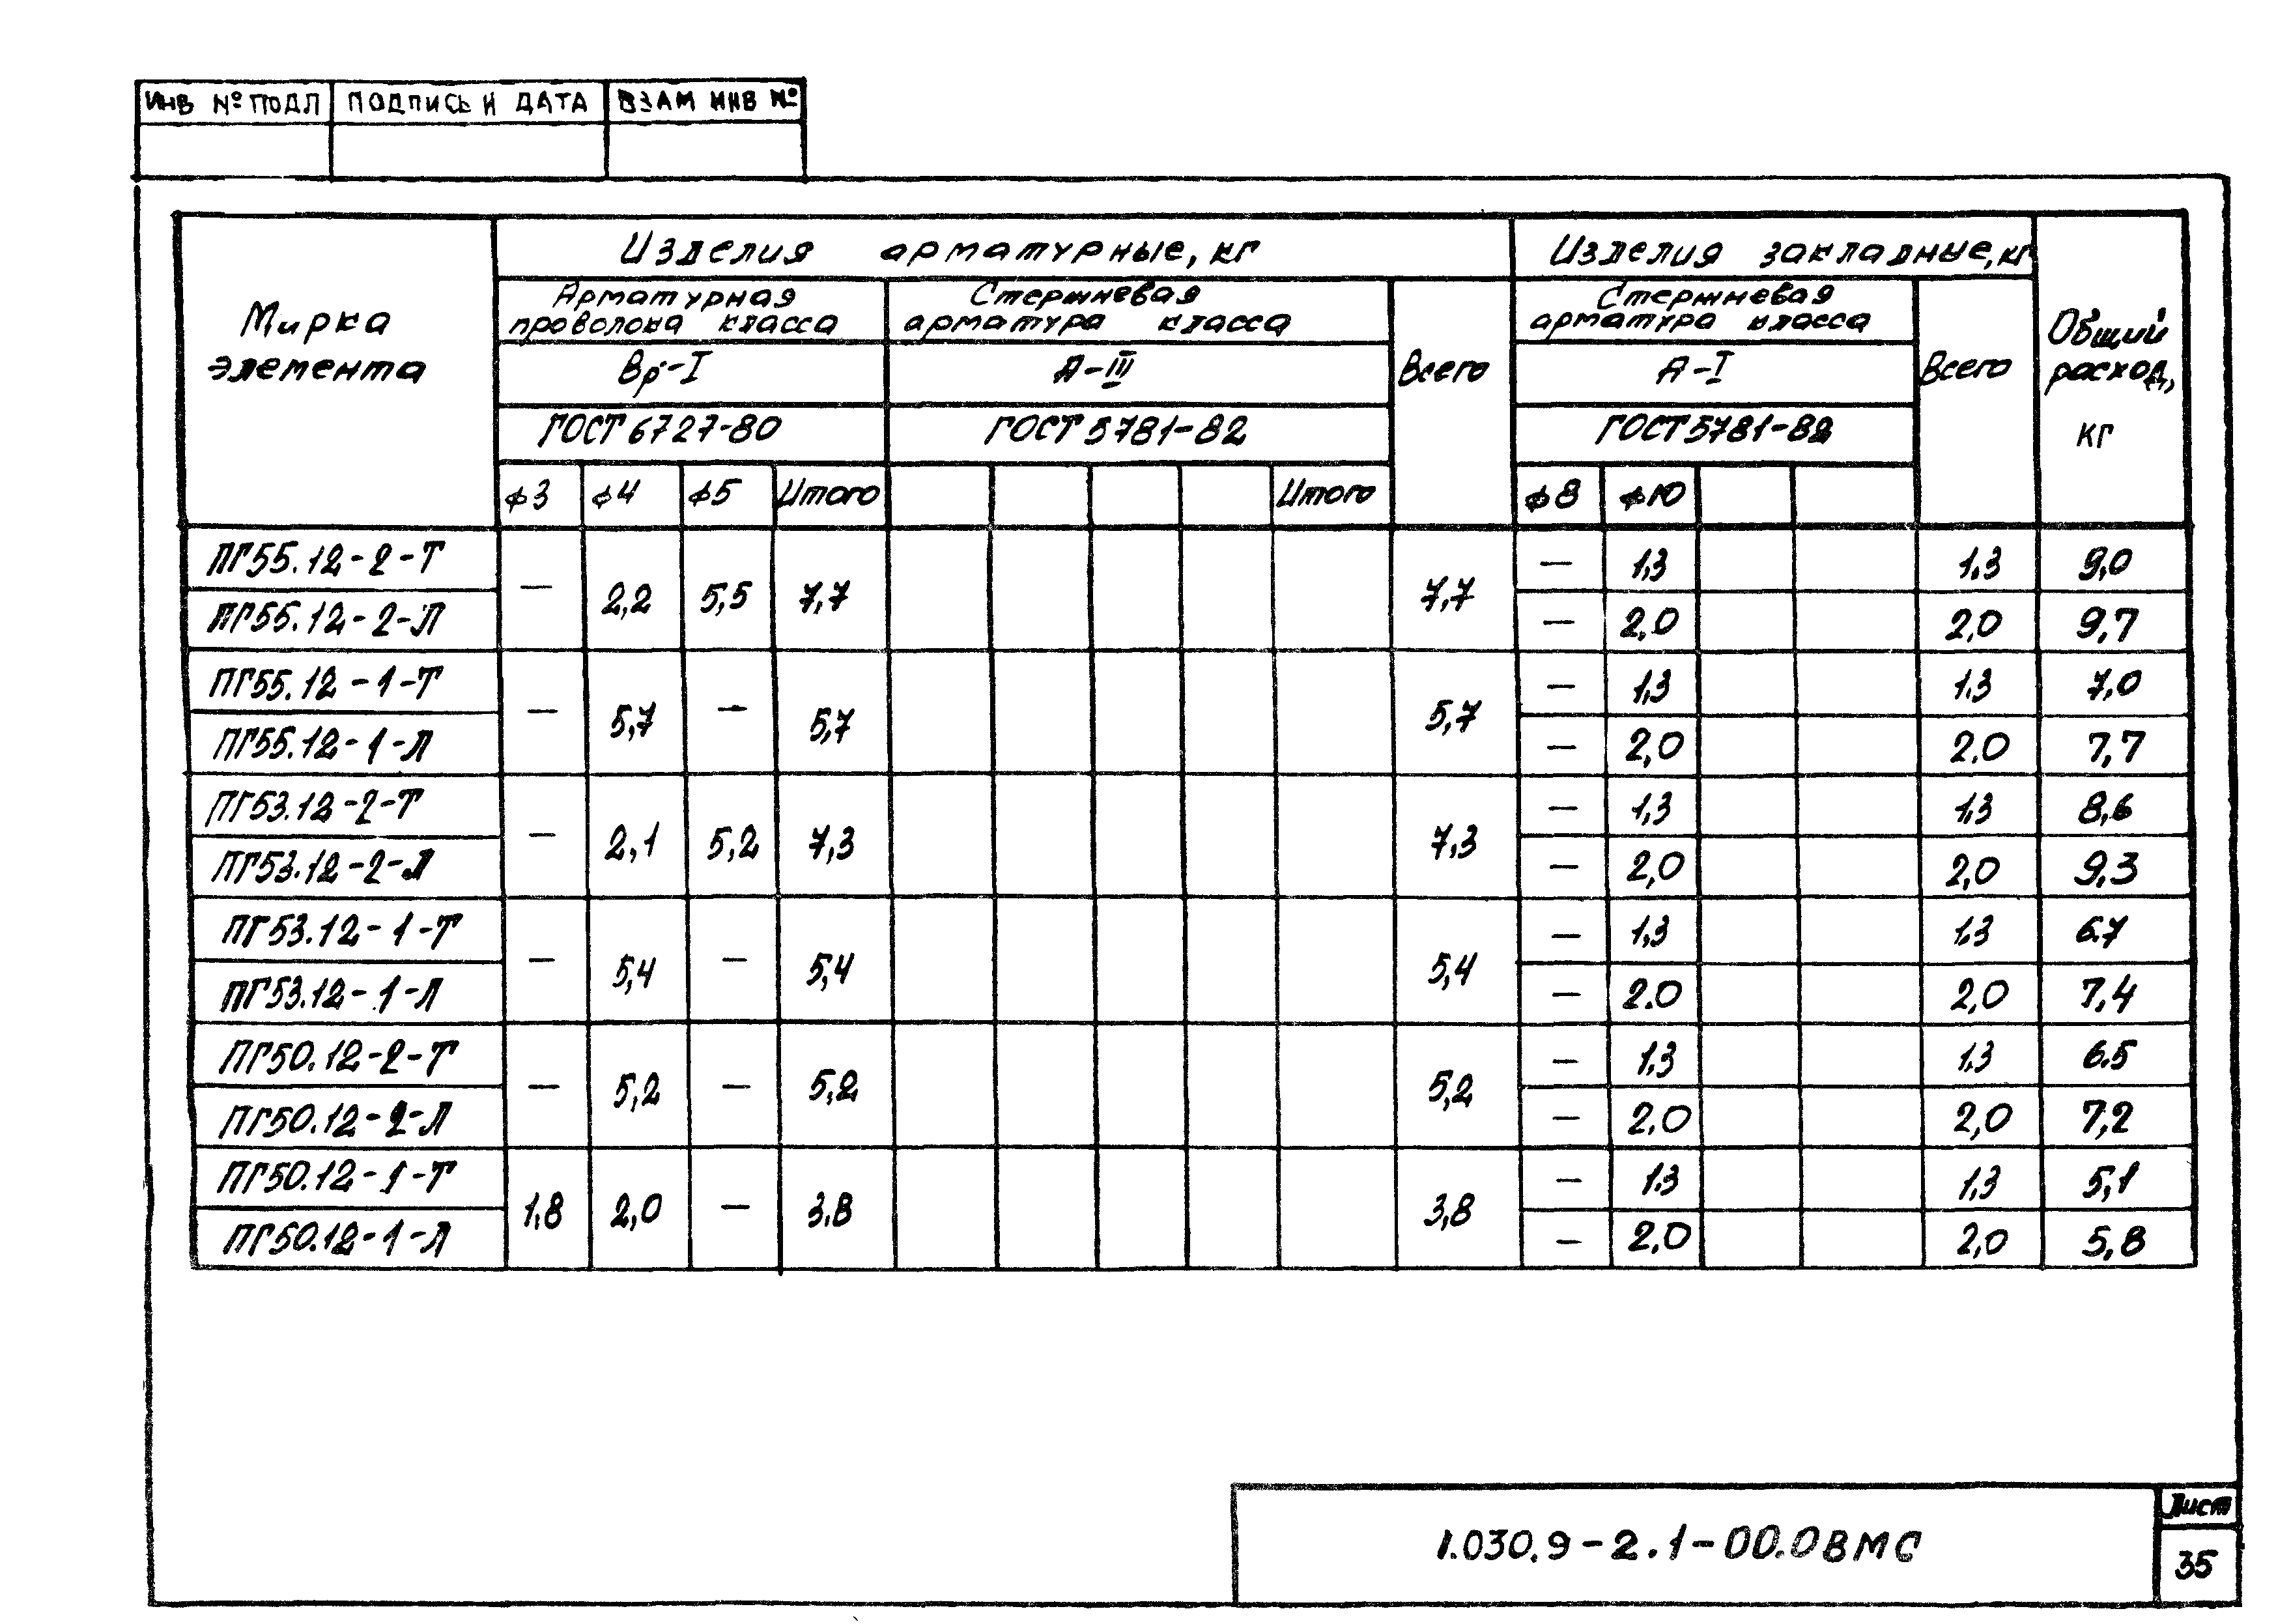 ИНВ № ПОДЛ ПОДПИСЬ И ДАТА ВЗАМ ИНВ №
Марка элемента
Изделия арматурные, кг
Изделия закладные, кг
Общий расход, кг
Арматурная проволока класса
Стержневая арматура класса
Всего
Стержневая арматура класса
Всего
Вр-I
А-III
А-I
ГОСТ 6727-80
ГОСТ 5781-82
ГОСТ 5781-82
ф3 ф4 ф5 Итого Итого ф8 ф10
ПГ55.12-2-Т — 2,2 5,5 7,7 7,7 — 1,3 1,3 9,0
ПГ55.12-2-Л — 2,0 2,0 9,7
ПГ55.12-1-Т — 5,7 — 5,7 5,7 — 1,3 1.3 7,0
ПГ55.12-1-Л — 2,0 2.0 7,7
ПГ53.12-2-Т — 2,1 5,2 7,3 7,3 — 1,3 1,3 8,6
ПГ53.12-2-Л — 2,0 2,0 9,3
ПГ53.12-1-Т — 5,4 — 5,4 5,4 — 1,3 1.3 6.7
ПГ53.12-1-Л — 2.0 2,0 7,4
ПГ50.12-2-Т — 5,2 — 5,2 5,2 — 1,3 1.3 6.5
ПГ50.12-2-Л — 2,0 2,0 7,2
ПГ50.12-1-Т 1,8 2,0 — 3.8 3,8 — 1.3 1,3 5,1
ПГ50.12-1-Л — 2,0 2,0 5,8
1.030.9-2.1-00.0ВМС
Лист
35